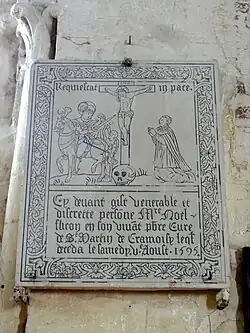 Requiescat in pace.
Cy deuant gist venerable et
discrette persone Mre Noel
en son viuãt pbre Cure
de St Martin de Cramoisy leql
deceda le samedy v. Aoust. 1595